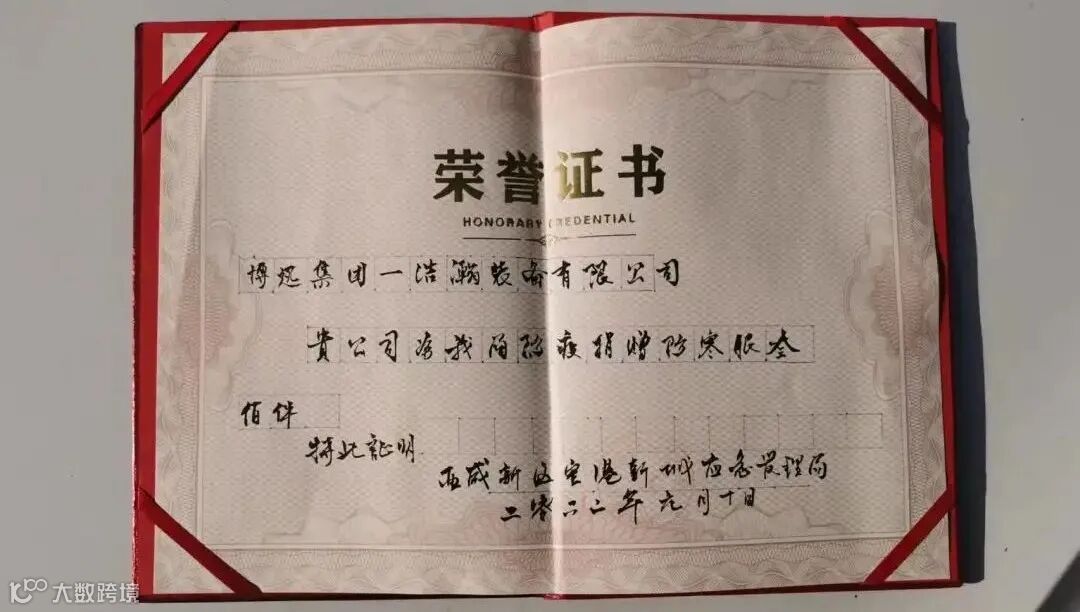 荣誉证书
HONORARY CREDENTIAL
博炽集团一浩瀚装备有限公司
贵公司为我局防疫捐赠防寒服叁
佰件
特此证明
西咸新区空港新城应急管理局
二零二二年元月十日
大数跨境